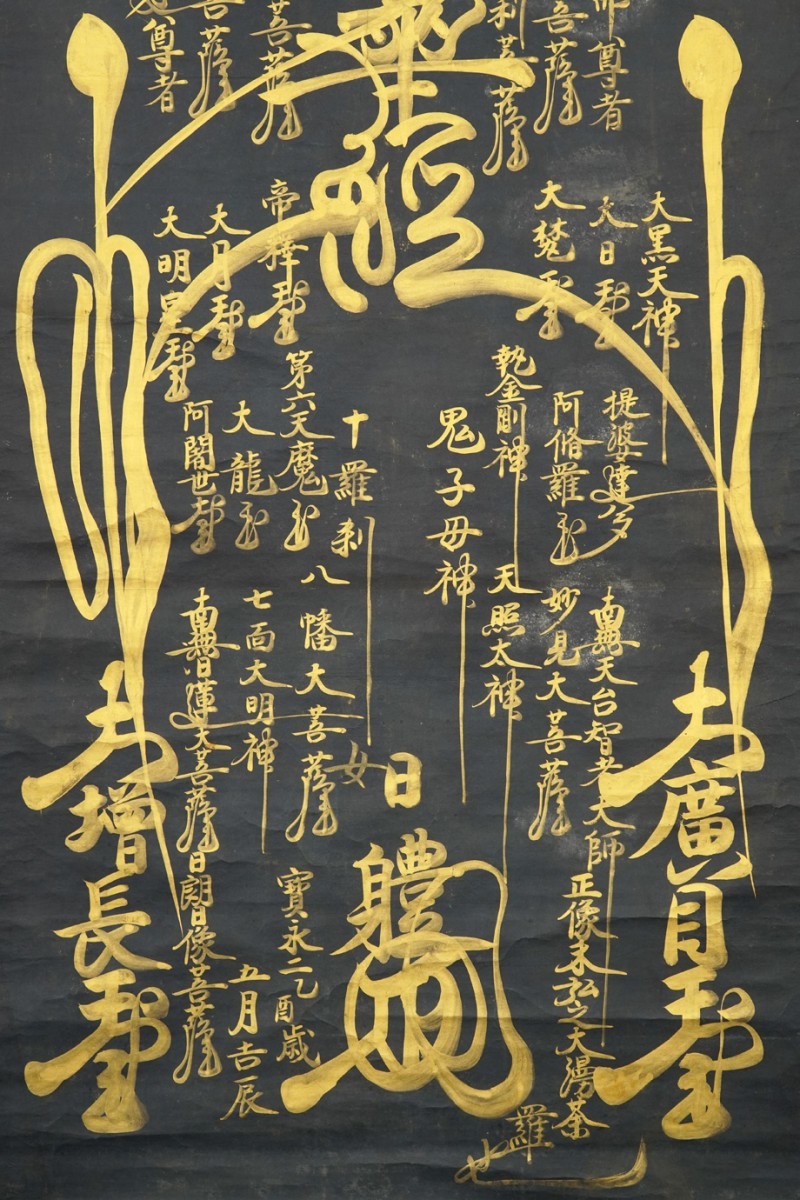 尊者
菩薩
利菩薩
華經
菩薩
菩薩
尊者
大黒天神
大日天王
大梵天王
帝釋天王
大月天王
大明星天王
提婆達多
阿脩羅王
執金剛神
鬼子母神
十羅刹女
第六天魔王
大龍王
阿闍世王
南無天台智者大師
妙見大菩薩
天照太神
八幡大菩薩
七面大明神
南無日蓮大菩薩日朗日像菩薩
大廣目天王
正像未弘之大漫荼羅也
日體
寶永二乙酉歳
五月吉辰
大增長天王